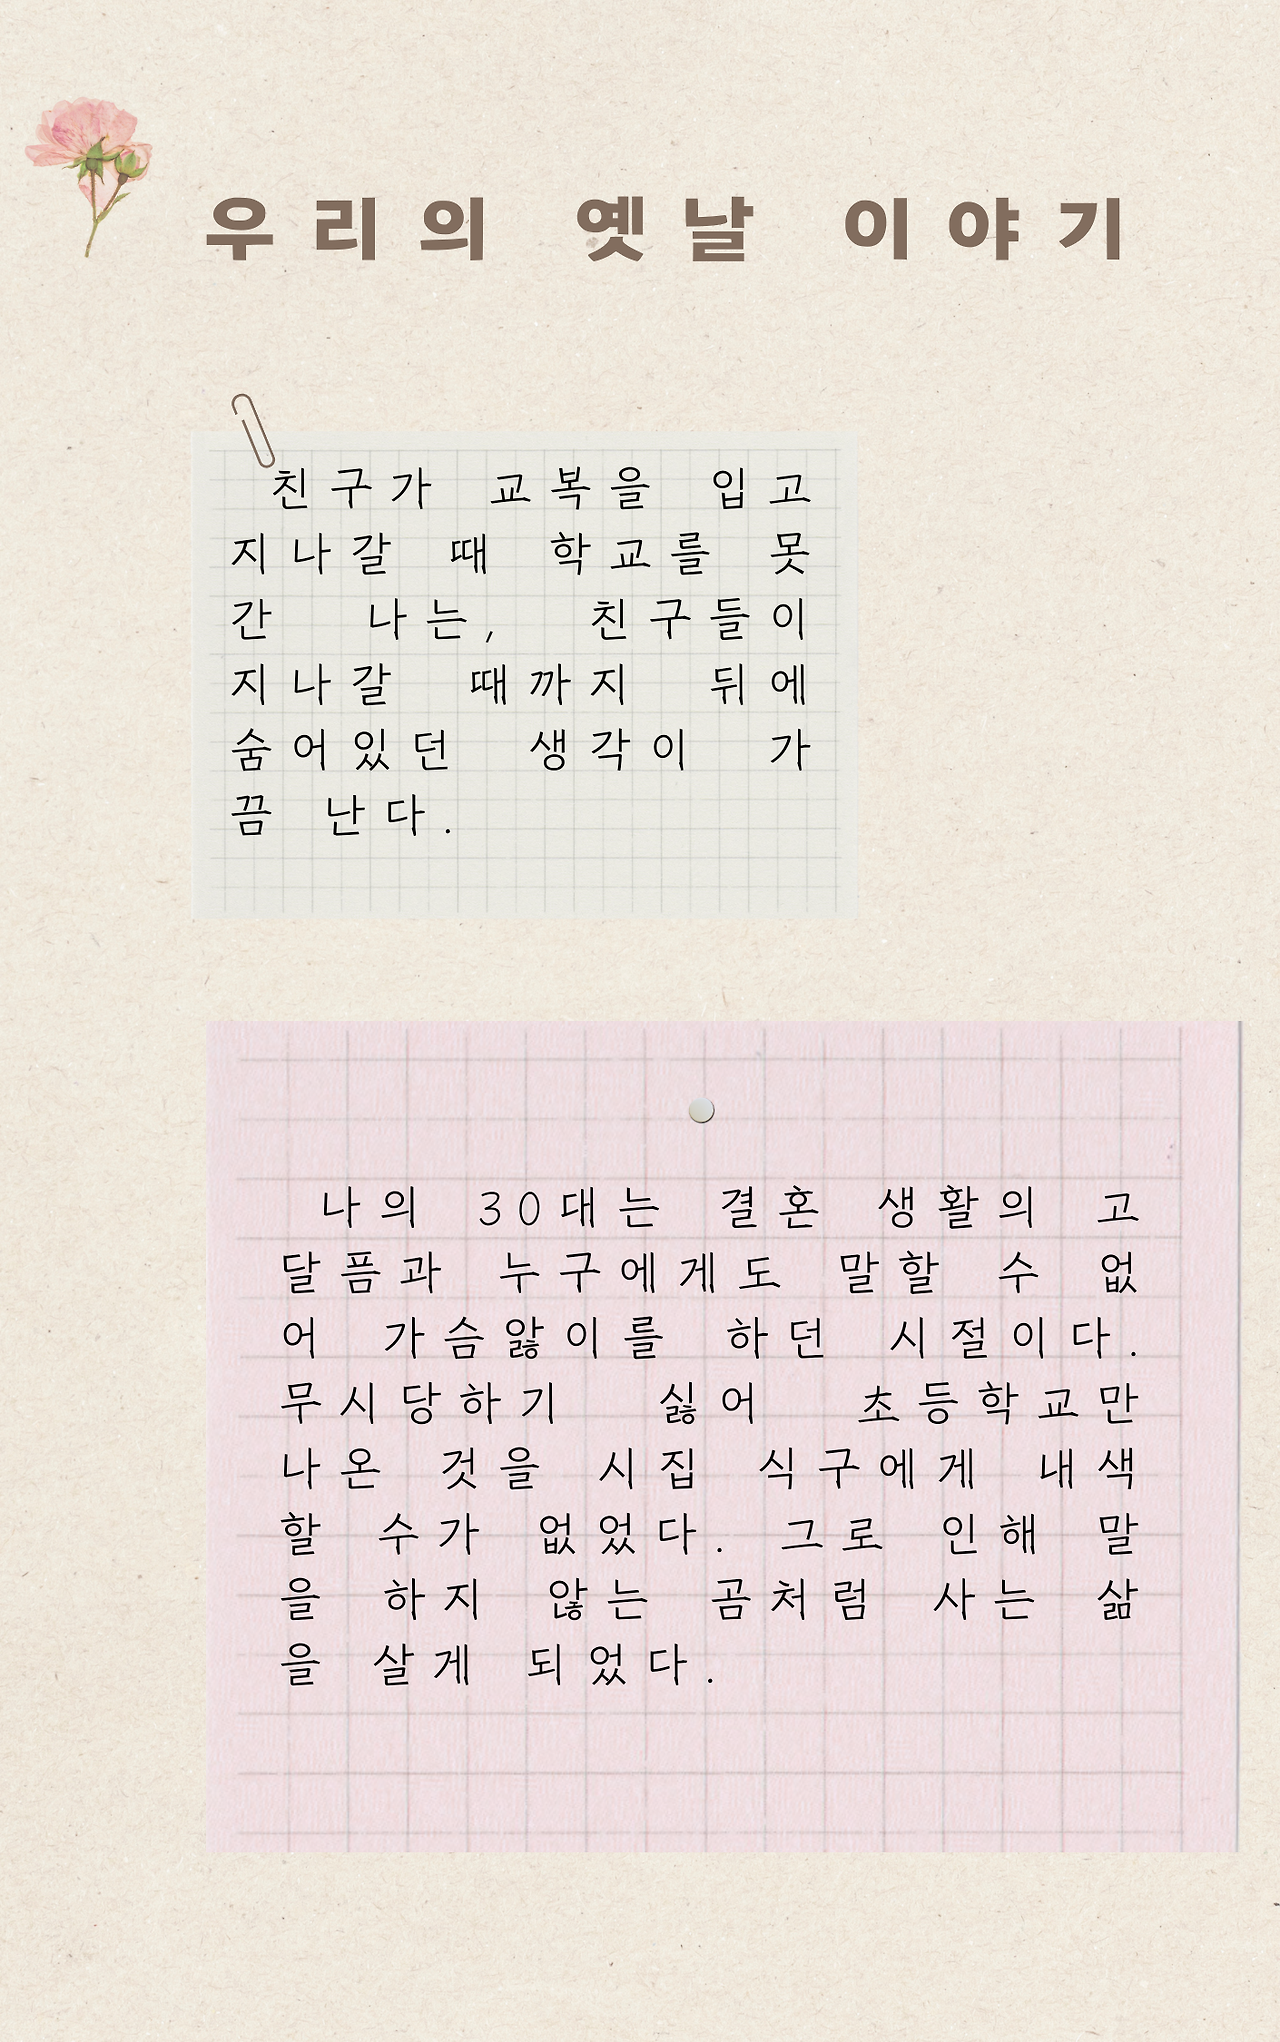 우리의 옛날 이야기
친구가 교복을 입고
지나갈 때 학교를 못
간 나는, 친구들이
지나갈 때까지 뒤에
숨어있던 생각이 가
끔 난다.
나의 30대는 결혼 생활의 고
달픔과 누구에게도 말할 수 없
어 가슴앓이를 하던 시절이다.
무시당하기 싫어 초등학교만
나온 것을 시집 식구에게 내색
할 수가 없었다. 그로 인해 말
을 하지 않는 곰처럼 사는 삶
을 살게 되었다.